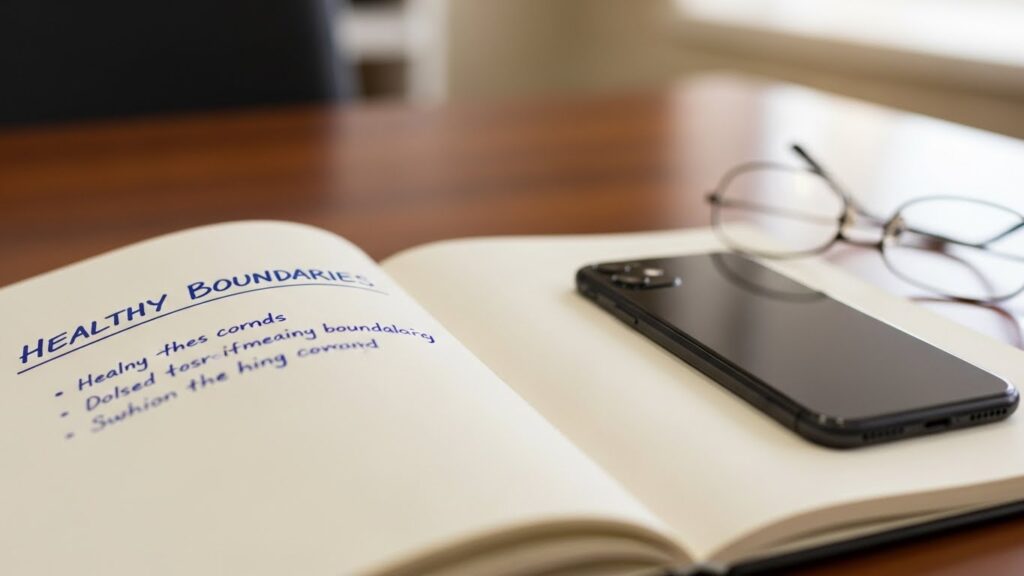 HEALTHY BOUNDARIES
- Healny thes cornds
- Dolsed tosr-ifmeaing boundalarg
- Swhion the hing corrand